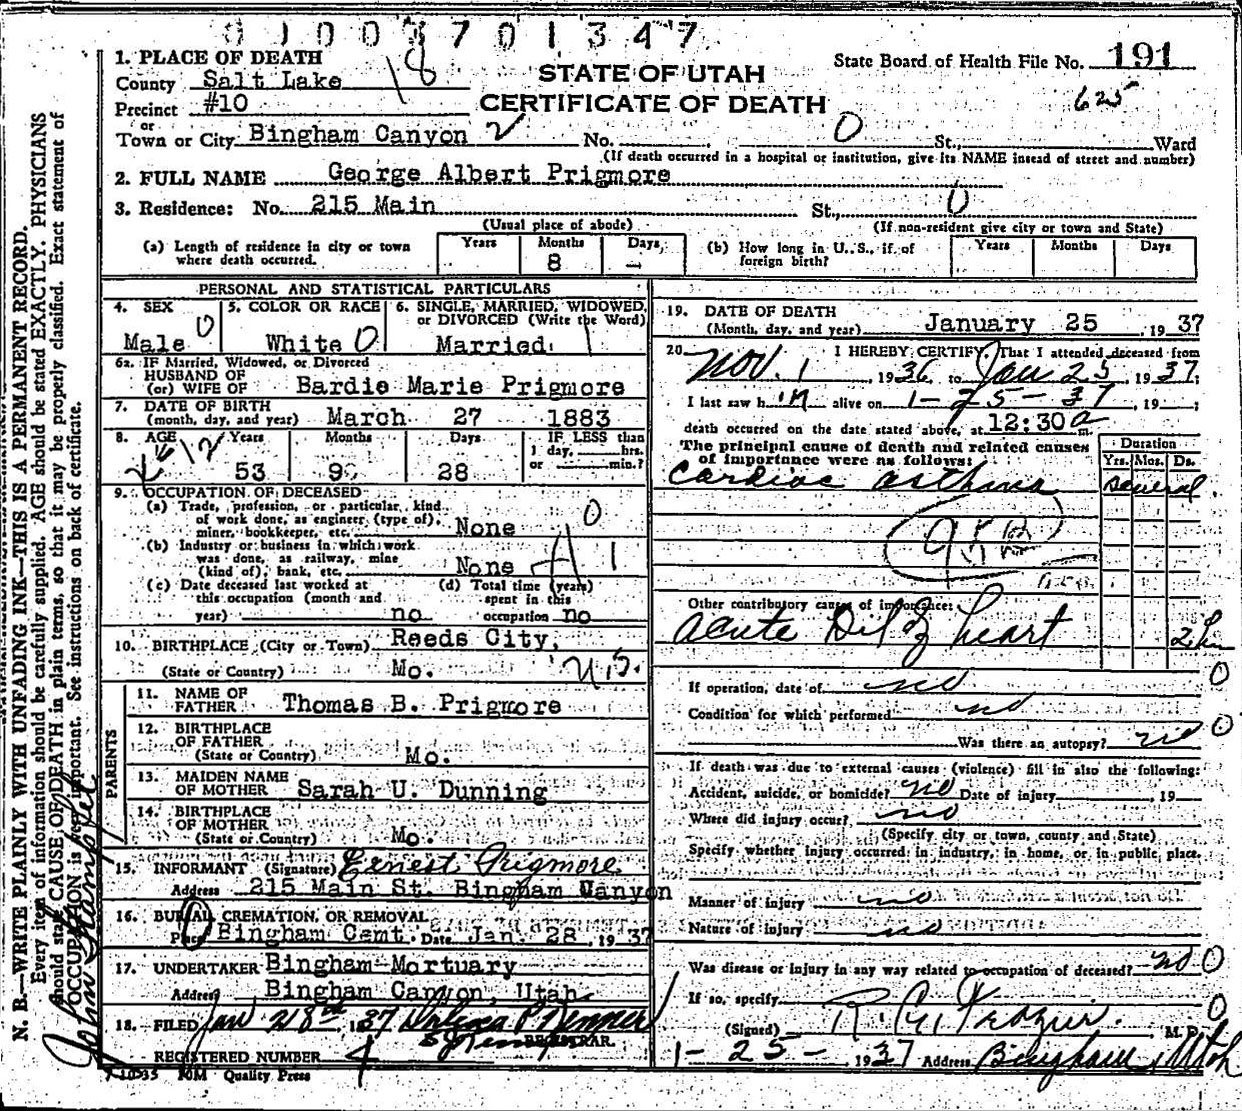 8 1 0 0 3 7 0 1 3 4 7
1. PLACE OF DEATH
County Salt Lake 18
Precinct #10
or
Town or City Bingham Canyon 2
STATE OF UTAH
CERTIFICATE OF DEATH
State Board of Health File No. 191
625
No. 0 St., Ward
(If death occurred in a hospital or institution, give its NAME insead of street and number)
2. FULL NAME George Albert Prigmore
3. Residence: No. 215 Main St., 0
(Usual place of abode) (If non-resident give city or town and State)
(a) Length of residence in city or town where death occurred. Years Months 8 Days –
(b) How long in U. S., if of foreign birth? Years Months Days
PERSONAL AND STATISTICAL PARTICULARS
4. SEX Male 0
5. COLOR OR RACE White 0
6. SINGLE, MARRIED, WIDOWED, or DIVORCED (Write the Word) Married 1
6a. IF Married, Widowed, or Divorced
HUSBAND OF
(or) WIFE OF Bardie Marie Prigmore
7. DATE OF BIRTH
(month, day, and year) March 27 1883
8. AGE Years 53 Months 9 Days 28
IF LESS than
1 day, hrs.
or min.?
9. OCCUPATION OF DECEASED
(a) Trade, profession, or particular kind
of work done, as engineer (type of),
miner, bookkeeper, etc. None 0
(b) Industry or business in which work
was done, as railway, mine
(kind of), bank, etc. None 1
(c) Date deceased last worked at
this occupation (month and
year) no
(d) Total time (years)
spent in this
occupation no
10. BIRTHPLACE (City or Town) Reeds City,
(State or Country) Mo. U.S.
PARENTS
11. NAME OF
FATHER Thomas B. Prigmore
12. BIRTHPLACE
OF FATHER
(State or Country) Mo.
13. MAIDEN NAME
OF MOTHER Sarah U. Dunning
14. BIRTHPLACE
OF MOTHER
(State or Country) Mo.
15. INFORMANT (Signature) Ernest Prigmore
Address 215 Main St. Bingham Canyon
16. BURIAL, CREMATION, OR REMOVAL
Place Bingham Cemt. Date Jan. 28, 1937
17. UNDERTAKER Bingham Mortuary
Address Bingham Canyon, Utah
18. FILED Jan 28th 1937
REGISTRAR.
REGISTERED NUMBER 4
7-10-35 10M Quality Press
19. DATE OF DEATH
(Month, day, and year) January 25, 1937
20. I HEREBY CERTIFY, That I attended deceased from
Nov. 1, 1936, to Jan 25, 1937;
I last saw him alive on 1-25-37, 19 ;
death occurred on the date stated above, at 12:30 a m.
The principal cause of death and related causes
of importance were as follows:
Duration
Yrs. Mos. Ds.
Cardiac asthma several
Other contributory causes of importance:
Acute Dil of heart
If operation, date of no 0
Condition for which performed no
Was there an autopsy? no 0
If death was due to external causes (violence) fill in also the following:
Accident, suicide, or homicide? no Date of injury , 19
Where did injury occur? no
(Specify city or town, county and State)
Specify whether injury occurred in industry, in home, or in public place.
Manner of injury no
Nature of injury no
Was disease or injury in any way related to occupation of deceased? no 0
If so, specify 0
(Signed) R. G. Frazier. M. D.
1-25-1937 Address Bingham, Utah
N. B.—WRITE PLAINLY WITH UNFADING INK—THIS IS A PERMANENT RECORD.
Every item of information should be carefully supplied. AGE should be stated EXACTLY. PHYSICIANS
should state CAUSE OF DEATH in plain terms, so that it may be properly classified. Exact statement of
OCCUPATION is very important. See instructions on back of certificate.